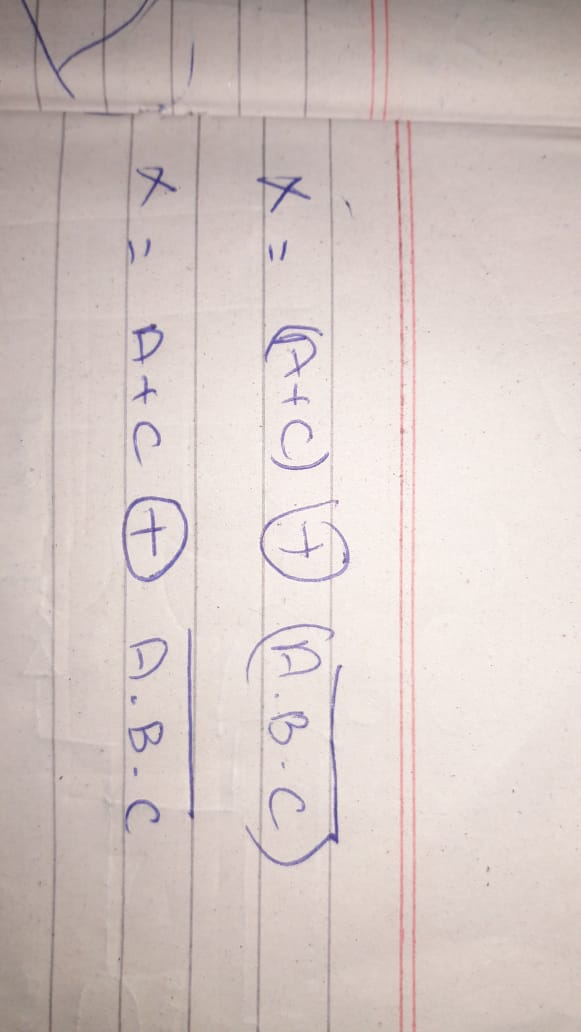 X = (A+C) ⊕ (\overline{A.B.C})
X = A+C ⊕ \overline{A.B.C}